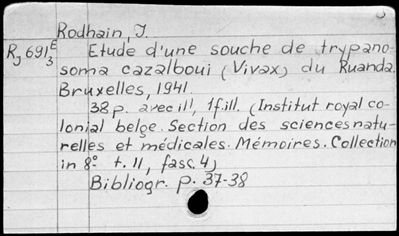 Rodhain, J.
Rg 691 E/3 Etude d'une souche de trypano-
soma cazalboui (Vivax) du Ruanda.
Bruxelles, 1941
38 p. avec ill', 1 f. ill. (Institut royal co-
lonial belge. Section des sciences natu-
relles et médicales. Mémoires. Collection
in 8° t. 11, fasc. 4)
Bibliogr. p. 37-38